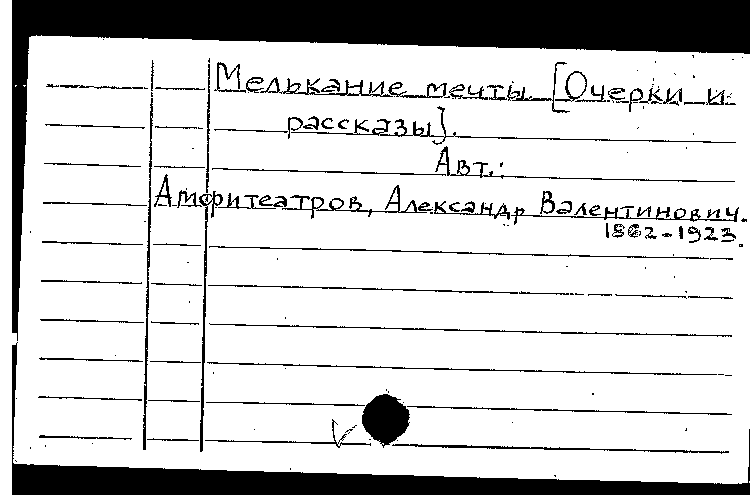 Мелькание мечты [Очерки и
рассказы].
Авт.:
Амфитеатров, Александр Валентинович.
1862-1923.